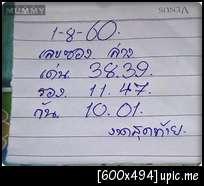 MUMMY
1-8-60.
เลขซอง ล่าง
เด่น 38.39.
รอง. 11.47.
กัน. 10.01.
งวดสุดท้าย.
[600x494] upic.me